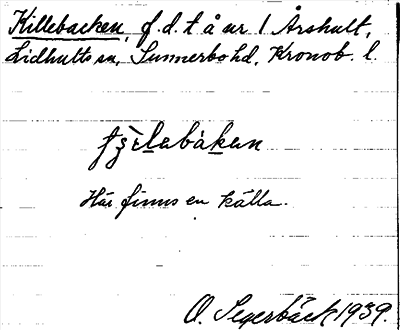 Killebacken, f.d. t å nr 1 Årshult,
Lidhults sn, Sunnerbo hd, Kronob. l.
Här finns en källa.
O. Segerbäck 1939.